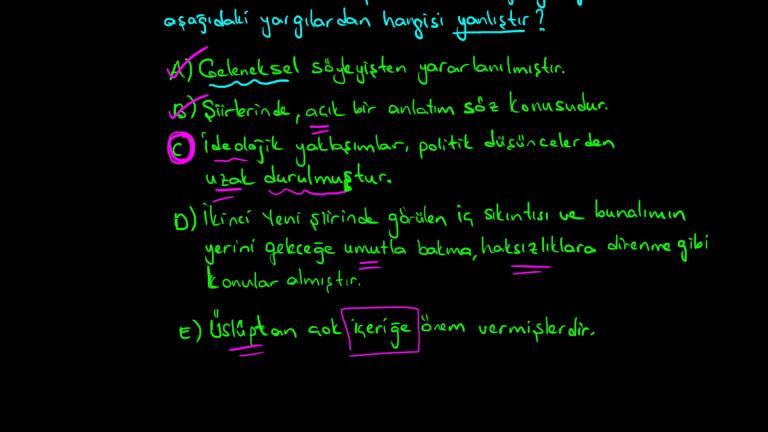 aşağıdaki yargılardan hangisi yanlıştır?
A) Geleneksel söyleyişten yararlanılmıştır.
B) Şiirlerinde, açık bir anlatım söz konusudur.
C) İdeolojik yaklaşımlar, politik düşüncelerden
uzak durulmuştur.
D) İkinci Yeni şiirinde görülen iç sıkıntısı ve bunalımın
yerini geleceğe umutla bakma, haksızlıklara direnme gibi
konular almıştır.
E) Üslûptan çok içeriğe önem vermişlerdir.